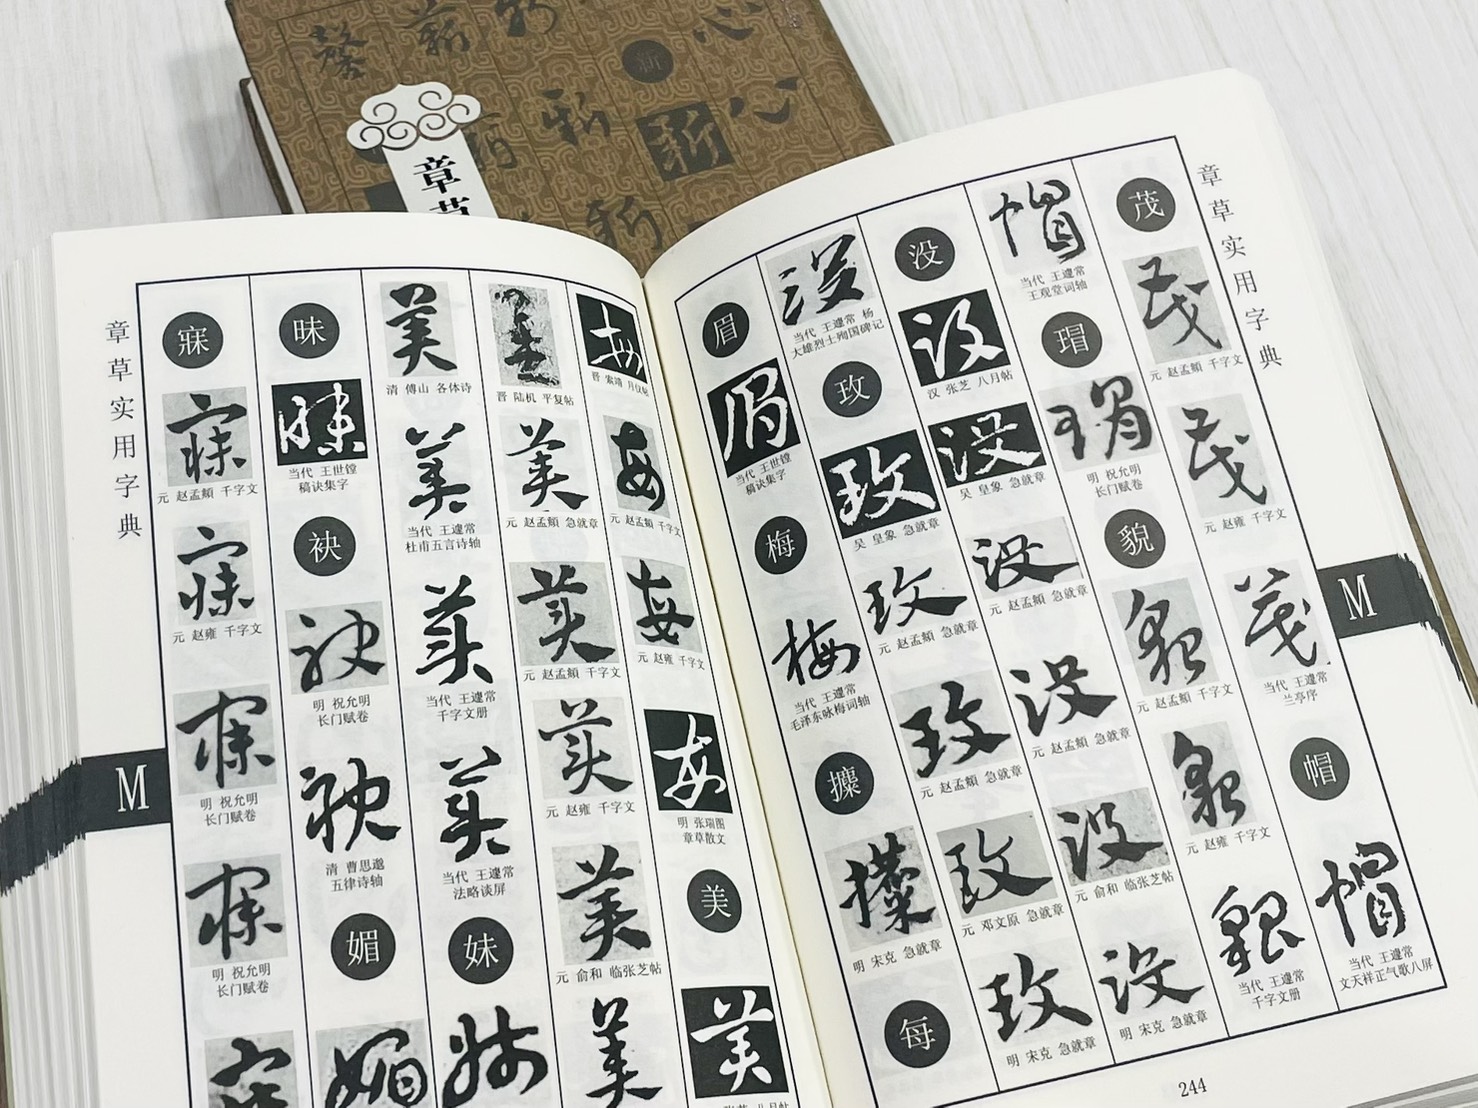 章草
新
新
心
章草实用字典
茂
茂
元 赵孟頫 千字文
茂
元 赵雍 千字文
茂
当代 王蘧常
兰亭序
帽
帽
当代 王蘧常
文天样正气歌八屏
帽
当代 王蘧常
王观堂词轴
瑁
瑁
明 祝允明
长门赋卷
貌
貌
元 赵孟頫 千字文
貌
元 赵雍 千字文
貌
当代 王蘧常
千字文册
没
没
汉 张芝 八月帖
没
吴 皇象 急就章
没
元 赵孟頫 急就章
没
元 赵孟頫 急就章
没
元 俞和 临张芝帖
没
明 宋克 急就章
没
当代 王蘧常 杨
大雄烈士殉国碑记
玫
玫
吴 皇象 急就章
玫
元 赵孟頫 急就章
玫
元 赵孟頫 急就章
玫
元 邓文原 急就章
玫
明 宋克 急就章
眉
眉
当代 王世镗
稿诀集字
梅
梅
当代 王蘧常
毛泽东咏梅词轴
攗
攗
明 宋克 急就章
每
M
244
每
晋 索靖 月仪帖
每
元 赵孟頫 千字文
每
元 赵雍 千字文
每
明 张瑞图
章草散文
美
美
美
晋 陆机 平复帖
美
元 赵孟頫 急就章
美
元 赵孟頫 千字文
美
元 赵雍 千字文
美
元 俞和 临张芝帖
美
美
清 傅山 各体诗
美
当代 王蘧常
杜甫五言诗轴
美
当代 王蘧常
千字文册
美
当代 王蘧常
法略谈屏
妹
妹
昧
昧
当代 王世镗
稿诀集字
袂
袂
明 祝允明
长门赋卷
袂
清 曹思邈
五律诗轴
媚
媚
寐
寐
元 赵孟頫 千字文
寐
元 赵雍 千字文
寐
明 祝允明
长门赋卷
寐
明 祝允明
长门赋卷
章草实用字典
M